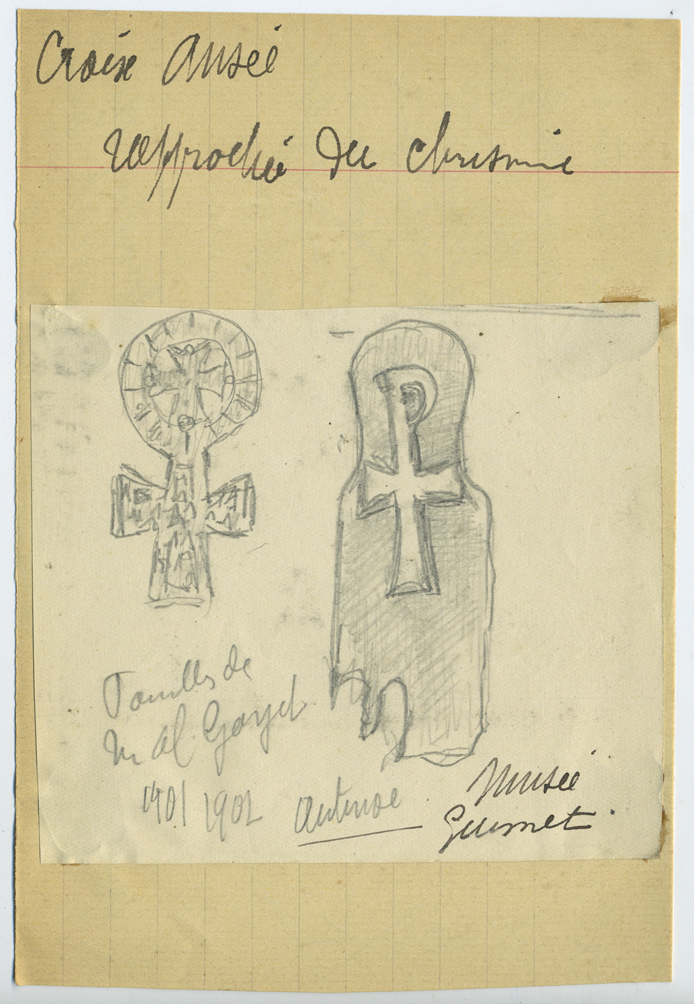 Croix Ansée
rapprochée du chrisme
Fouilles de
M Al. Gayet
1901 1902 Antinoé
Musée
Guimet